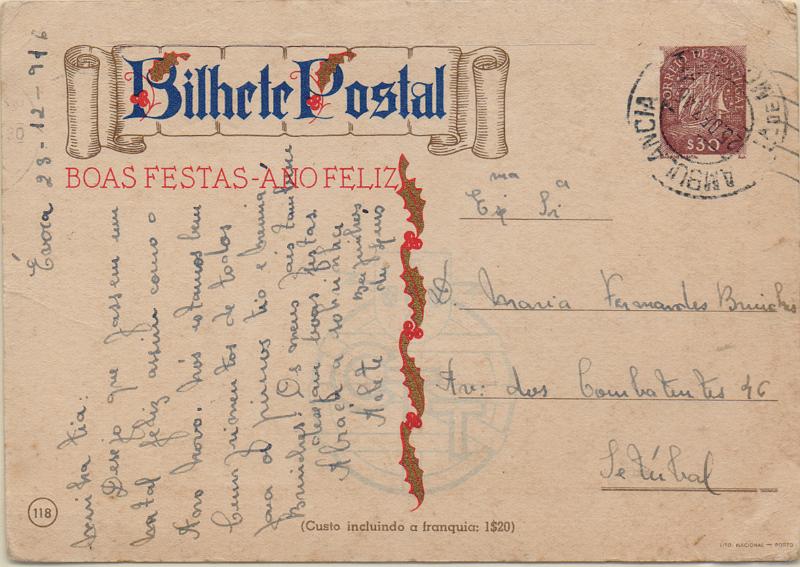 Bilhete Postal
BOAS FESTAS - ANO FELIZ
Évora 23-12-946
minha tia:
Desejo que passem um
natal feliz assim como o
Ano novo. nós estamos bem
Cumprimentos de todos
para os primos tio e menina
Os meus pais também
desejam boas festas.
Abraça a sobrinha
Beijinhos
Ex.ma Sr.a
D. Maria Fernandes
Av: dos Combatentes 46
Setúbal
CORREIO DE PORTUGAL
$30
AMBULANCIA
118
(Custo incluindo a franquia: 1$20)
LITO. NACIONAL — PORTO